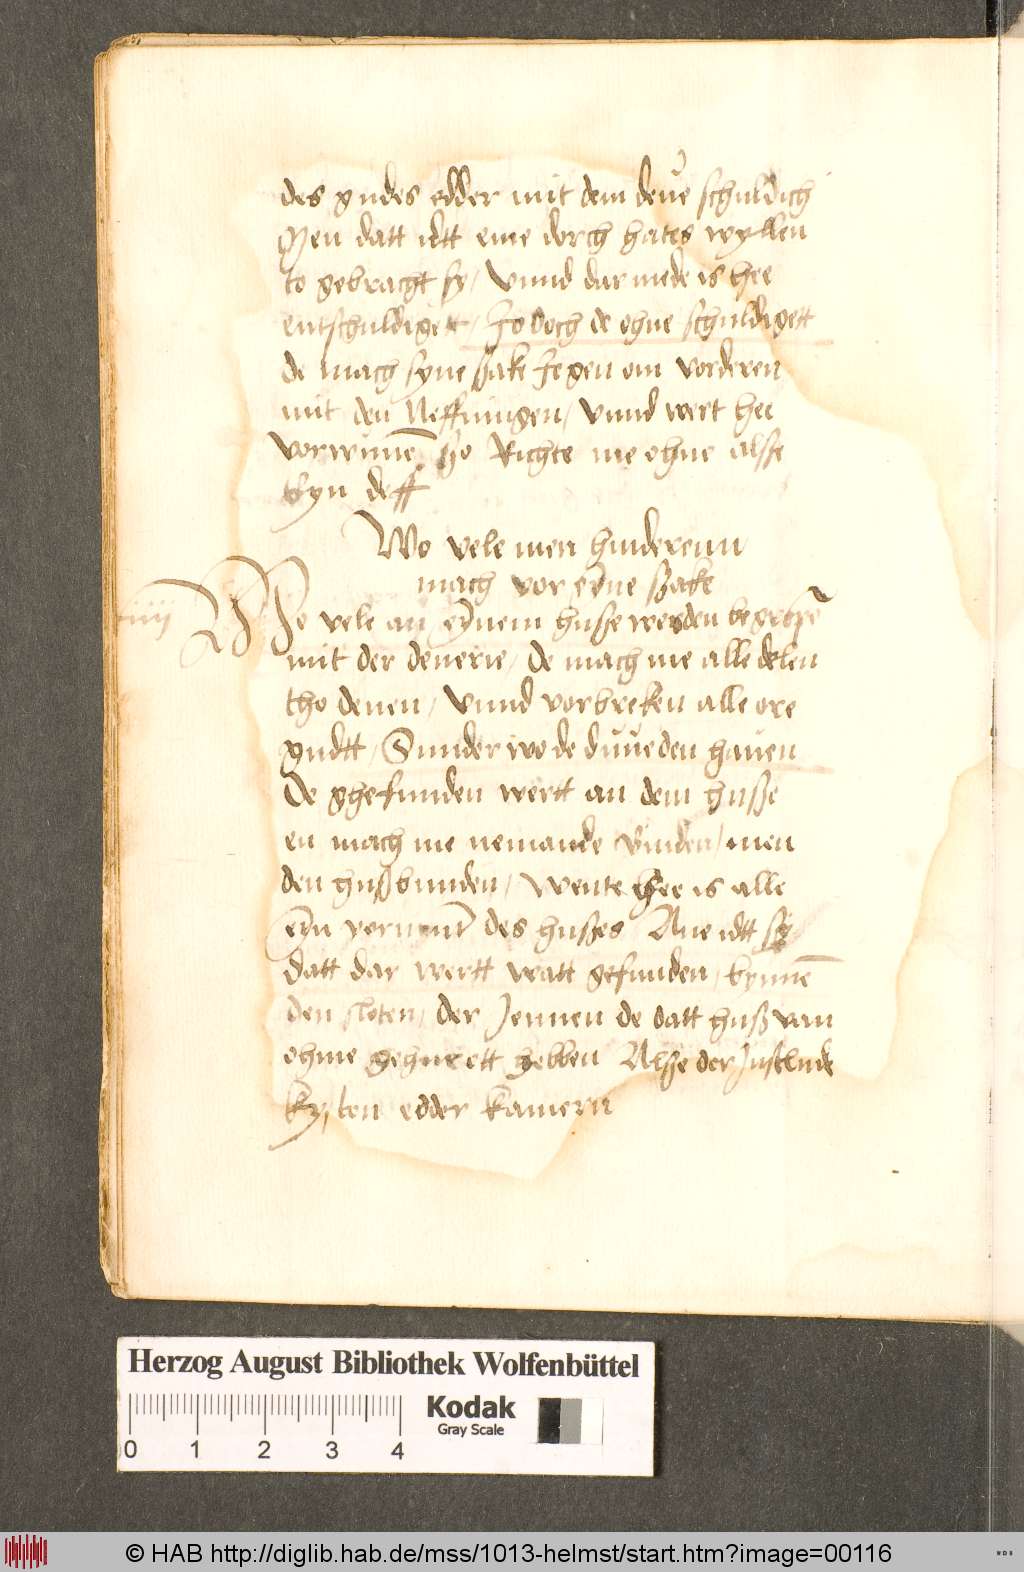 des gudes edder mit dem deue schuldich
Men datt idt eme dorch hates wyllen
to gebracht sy / Vnnd dar mede is hee
entschuldiget / Jodoch de ohne schuldigett
de mach syne sake Jegen om vorderen
mit den Neffningen / Vnnd wert hei
vorwunē tho Richte me ohne alsse
eyn deff
Wo vele men hinderenn
mach vor eyne sake
iiij
Wo vele an eynem husse werden begrepē
mit der deuerie / de mach me alle delen
tho deuen / Vnnd vorbreken alle ore
gudtt / Sunder wo de duue den hauen
De ghefunden wertt an dem husse
en mach me nemande binden / men
den hußbunden / Wente hee is alle
eyn vormunt des husses Aue idtt sy
datt dar wertt watt gefunden / bynnē
den sloten / der Jennen de datt huß van
ohme gehurett hebben Alße der Justlude
kysten edder kamern
Herzog August Bibliothek Wolfenbüttel
0 1 2 3 4
Kodak
Gray Scale
© HAB http://diglib.hab.de/mss/1013-helmst/start.htm?image=00116